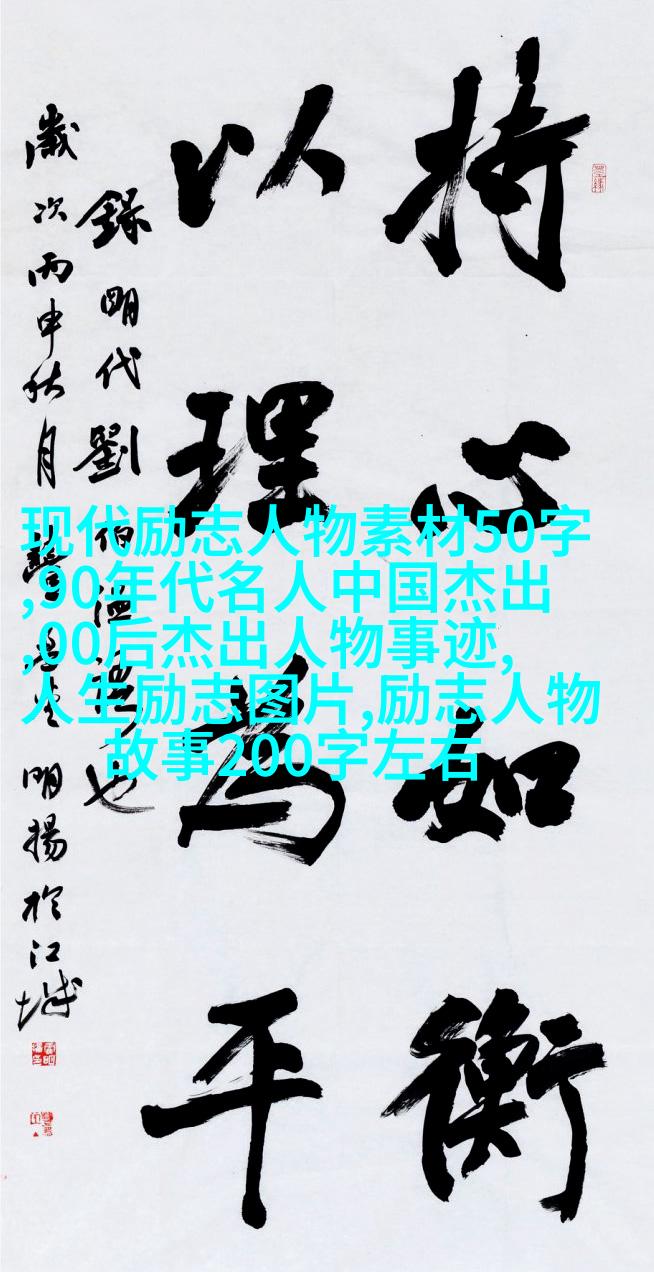 持心如衡
以理為平
錄明代劉伯溫語也
歲次丙申秋月
明揚於江城
现代励志人物素材50字
,90年代名人中国杰出
,00后杰出人物事迹,
人生励志图片,励志人物
故事200字左右